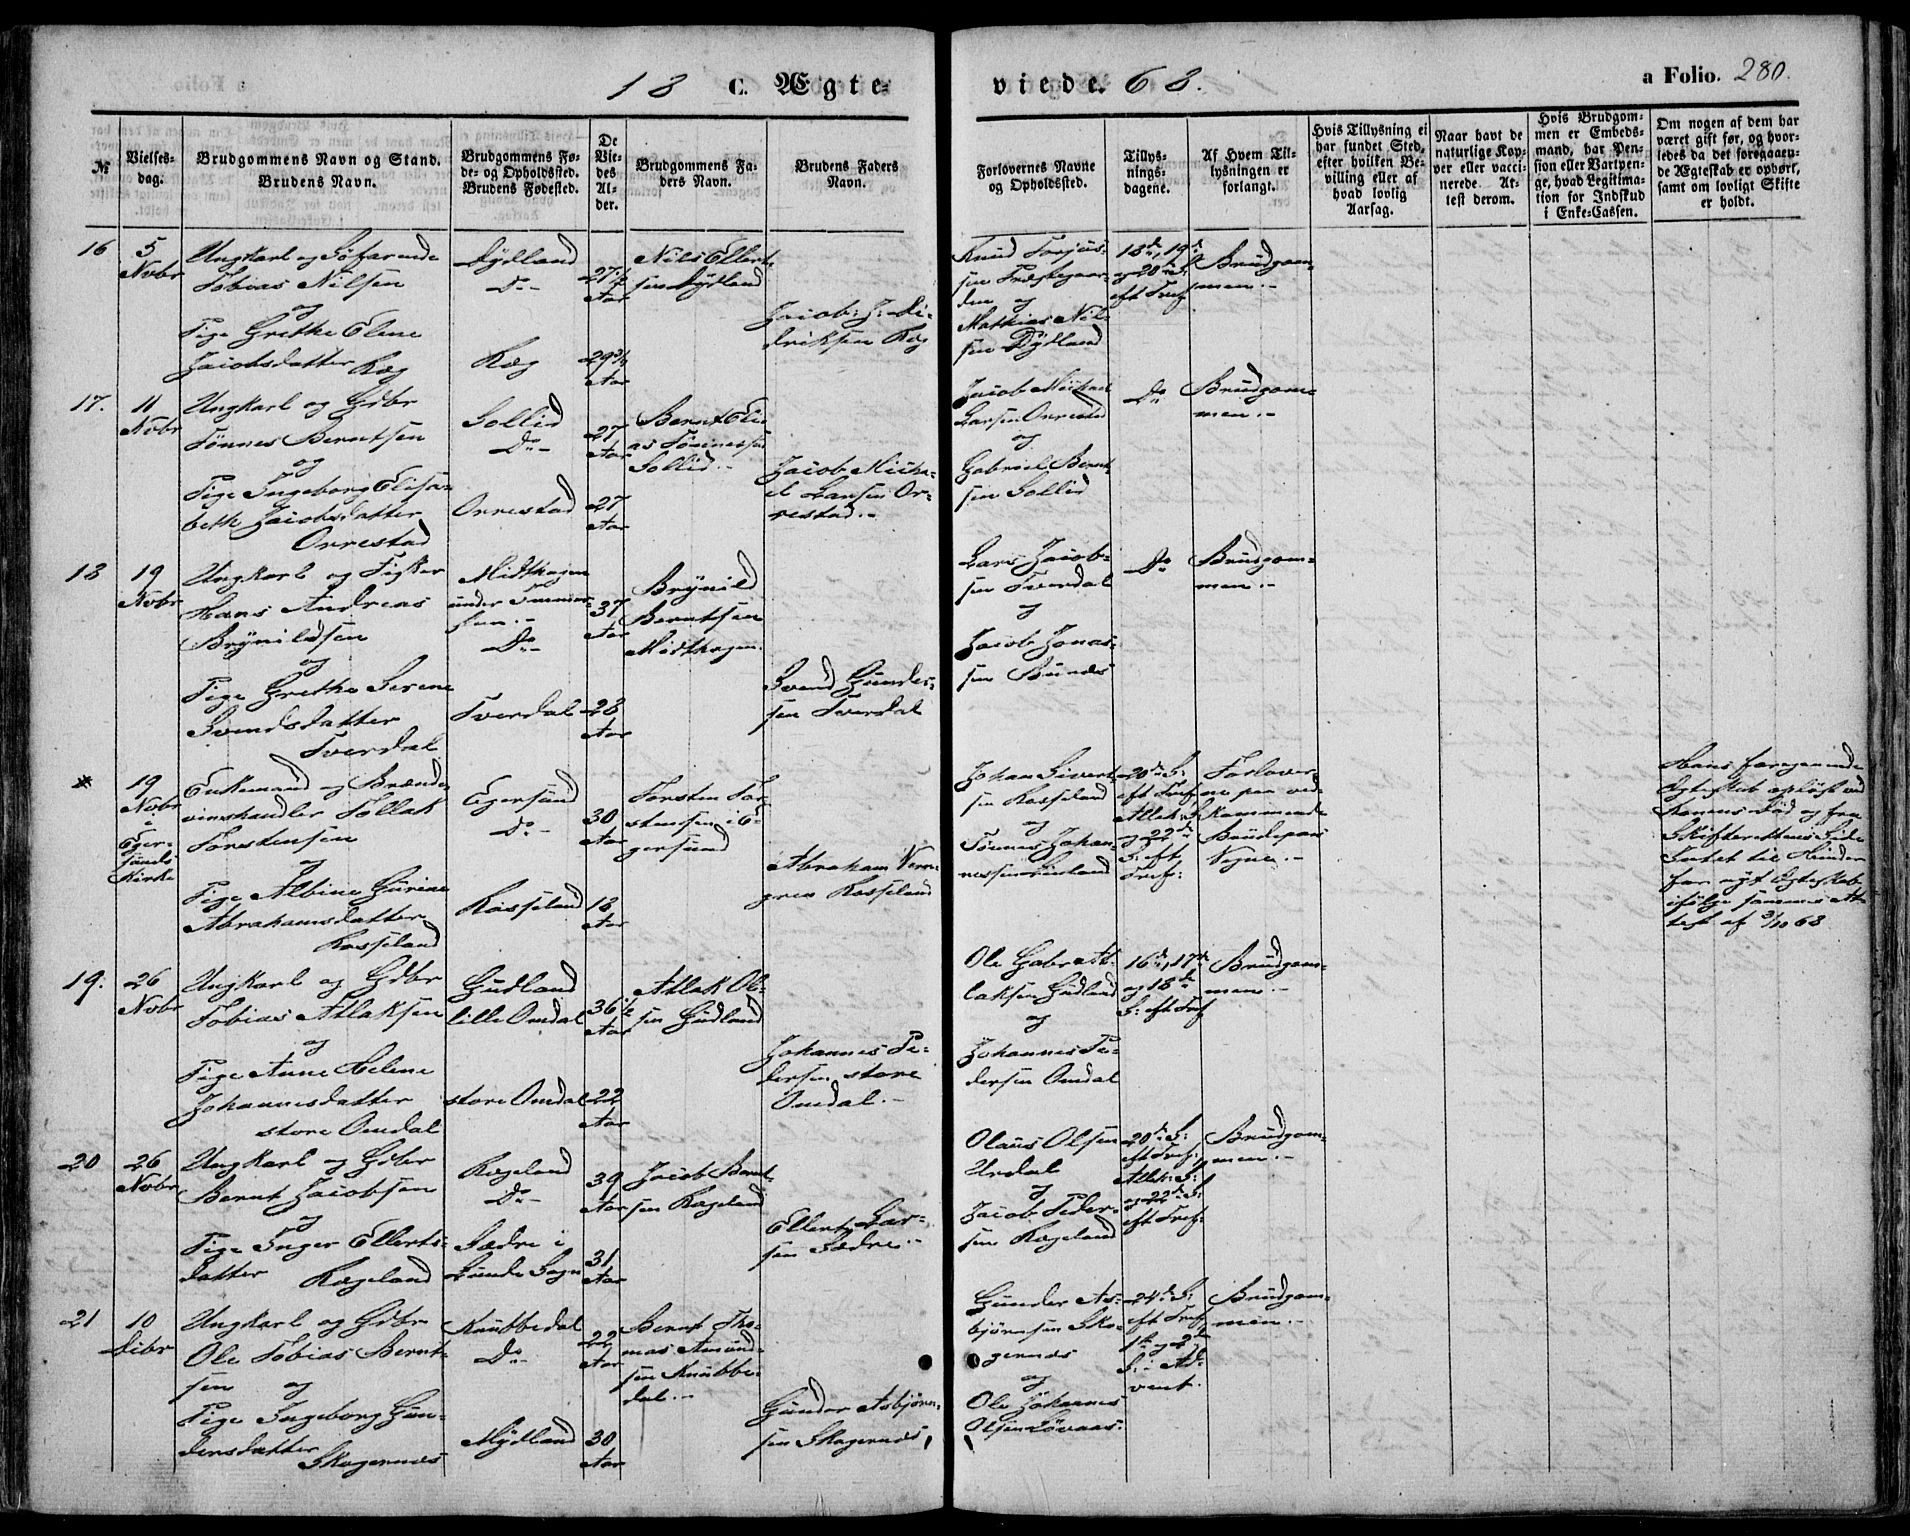 18 C. Ægte-
viede. 68.
a Folio. 280.
№
Vielses-
dag.
Brudgommens Navn og Stand.
Brudens Navn.
Brudgommens Fø-
de- og Opholdssted.
Brudens Fødested.
De
Vie-
des
Al-
der.
Brudgommens Fa-
ders Navn.
Brudens Faders
Navn.
Forlovernes Navne
og Opholdssted.
Tillys-
nings-
dagene.
Af Hvem Til-
lysningen er
forlangt.
Hvis Tillysning ei
har fundet Sted,
efter hvilken Be-
villing eller af
hvad lovlig
Aarsag.
Naar havt de
naturlige Kop-
per eller vacci-
nerede. At-
test derom.
Hvis Brudgom-
men er Embeds-
mand, har Pen-
sion eller Vartpen-
ge, hvad Legitima-
tion for Indskud
i Enke-Cassen.
Om nogen af dem har
været gift før, og hvor-
ledes da det foregaaen-
de Ægteskab er ophørt,
samt om lovligt Skifte
er holdt.
16
5
Nvbr
Ungkarl og Søfarende
Tobias Nilsen
og
Pige Grethe Elene
Jacobsdatter Røg
Dydland
Do
Røg
27 1/2
Aar
29 3/4
Aar
Nils Ellert-
sen Dydland
Jacob J. Di-
driksen Røg
Knud Torjus-
sen Præstegaar-
den og
Mathias Nil-
sen Dydland
18de, 19de
og 20de S.
eft Tref
Brudgom-
men.
17.
11
Nvbr
Ungkarl og Gdbr
Tønnes Berntsen
og
Pige Ingeborg Elisa-
beth Jacobsdatter
Orrestad
Sollid
Do
Orrestad
27
Aar
27
Aar
Bernt Eli-
as Tønnessen
Sollid.
Jacob Micha-
el Larsen Or-
restad.
Jacob Michael
Larsen Orrestad
og
Gabriel Bernt-
sen Sollid
Do
Brudgom-
men.
18
19
Nvbr
Ungkarl og Fisker
Hans Andreas
Brynildsen
og
Pige Grethe Serene
Svendsdatter
Tverdal
Midthagen
under
Do
Tverdal
37
Aar
28
Aar
Brynild
Berntsen
Midthagen.
Svend Gunder-
sen Tverdal
Lars Jacob-
sen Tverdal
og
Jacob Jonas-
sen
Do
Brudgom-
men.
19
Nvbr
i
Eger-
sunds
Kirke
Enkemand og Brænde-
vinshandler Tollak
Torstensen
og
Pige Albine Gurine
Abrahamsdatter
Rosseland
Egersund
Do
Rosseland
30
Aar
18
Aar
Torsten Tor-
stensen i E-
gersund
Abraham
Rosseland
Johan Sivert-
sen Rosseland
og
Tønnes Johan-
nessen
20de S:
eft Tref,
og 22de
S: eft
Tref:
Forlover-
ne paa ved-
kommende
Brudepars
Vegne.
Hans foregaaende
Ægteskab opløst ved
Konens Død og fra
Skifterettens Side
Intet til Hinder
for nyt Ægteskab
ifølge sammes At-
test af 3/10 68
19.
26
Nvbr
Ungkarl og Gdbr
Tobias Atlaksen
og
Pige Anne Helene
Johannesdatter
store Omdal
Gudland
lille Omdal
store Omdal
36 1/2
Aar
22
Aar
Atlak Ol-
sen Gudland
Johannes Pe-
dersen store
Omdal.
Ole Gabr At-
laksen Gudland
og
Johannes Pe-
dersen Omdal
16de, 17de
og 18de
S: eft Tref
Brudgom-
men.
20
26
Nvbr
Ungkarl og Gdbr
Bernt Jacobsen
og
Pige Inger Ellerts-
datter Rægeland
Rægeland
Do
Sædre i
Lunde Sogn
39
Aar
31
Aar
Jacob Bernt-
sen Rægeland
Ellert Lar-
sen Sædre.
Olaus Olsen
Urdal
og
Jacob Peder-
sen Rægeland
20de S:
eft Tref,
og 22de S:
eft Tref:
Brudgom-
men.
21
10
Decbr
Ungkarl og Gdbr
Ole Tobias Bernt-
sen og
Pige Ingeborg Gun-
dersdatter
Skogernæs
Knubbedal
Do
Mydland
22
Aar
30
Aar
Bernt Tho-
mas Amund-
sen Knubbe-
dal.
Gunder Asbjørn-
sen Skogernæs,
Gunder As-
bjørnsen Sko-
gernæs
og
Ole Johannes
Olsen Løvaas.
24de S:
eft Tref,
1ste og 2de
S: i Ad-
vent.
Brudgom-
men.